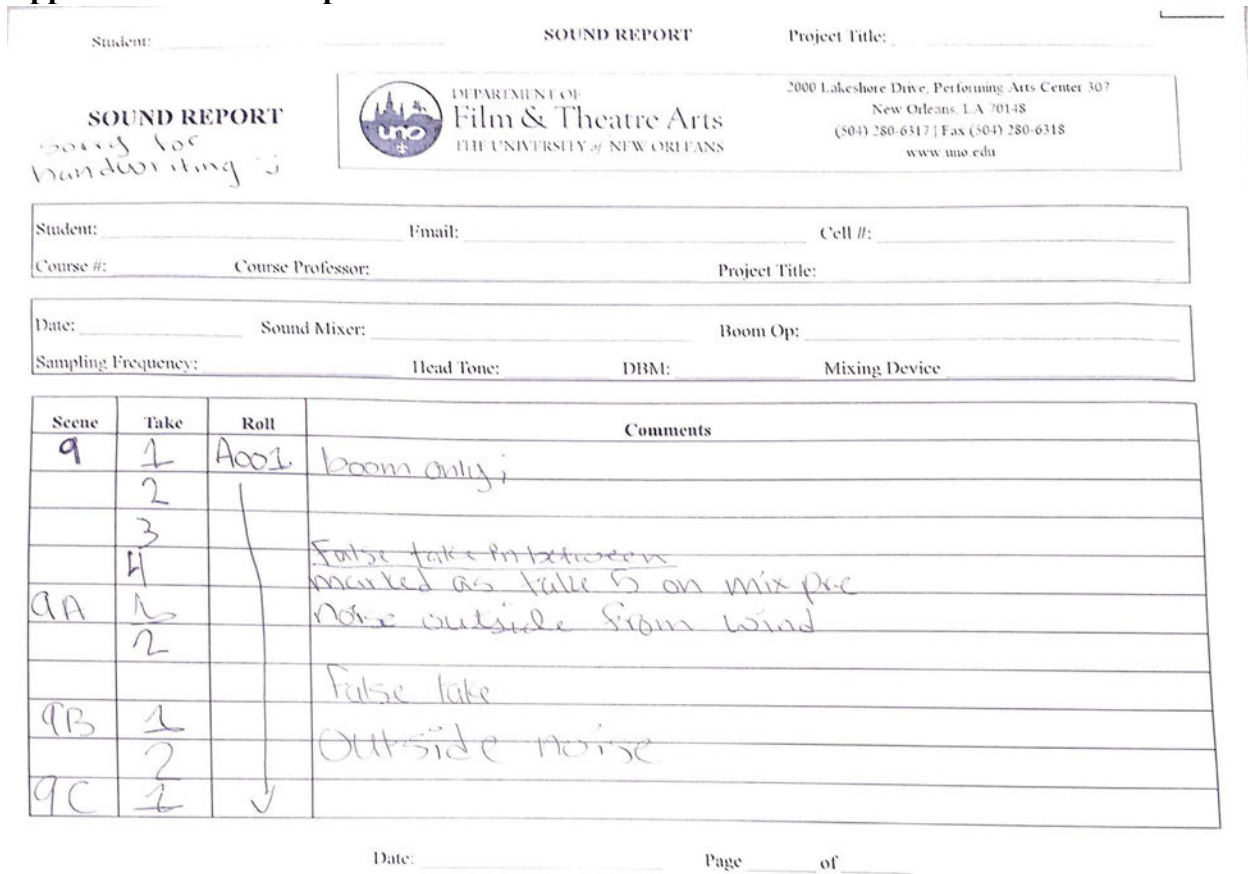 Student: SOUND REPORT Project Title:
SOUND REPORT
sorry for
handwriting :)
uno
DEPARTMENT OF
Film & Theatre Arts
THE UNIVERSITY of NEW ORLEANS
2000 Lakeshore Drive, Performing Arts Center 307
New Orleans, LA 70148
(504) 280-6317 | Fax (504) 280-6318
www.uno.edu
Student: Email: Cell #:
Course #: Course Professor: Project Title:
Date: Sound Mixer: Boom Op:
Sampling Frequency: Head Tone: DBM: Mixing Device
Scene Take Roll Comments
9 1 A001 boom only;
2
3
False take in between
4 marked as take 5 on mix pre
9A 1 noise outside from wind
2
False take
9B 1
2 outside noise
9C 1
Date: Page of